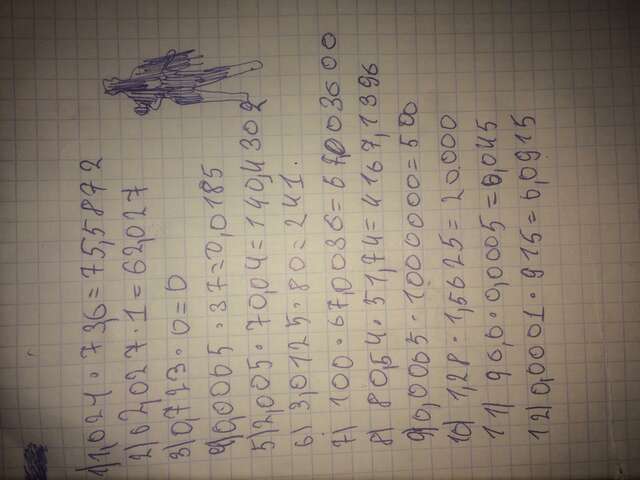 1) 1,024 · 73,6 = 75,5872
2) 62,027 · 1 = 62,027
3) 0,723 · 0 = 0
4) 0,0005 · 37 = 0,0185
5) 2,005 · 70,04 = 140,4302
6) 3,0125 · 80 = 241.
7) 100 · 67,0036 = 670036 00
8) 80,54 · 51,74 = 4167,1396
9) 0,0005 · 1000000 = 500
10) 1,28 · 1,5625 = 20.000
11) 90,0 · 0,0005 = 0,045
12) 0,0001 · 915 = 0,0915